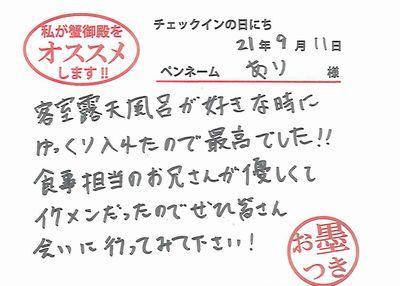 私が蟹御殿を
オススメ
します!!
チェックインの日にち
21年9月11日
ペンネーム あり 様
客室露天風呂が好きな時に
ゆっくり入れたので最高でした!!
食事担当のお兄さんが優しくて
イケメンだったのでぜひ皆さん
会いに行ってみて下さい!
お墨
つき